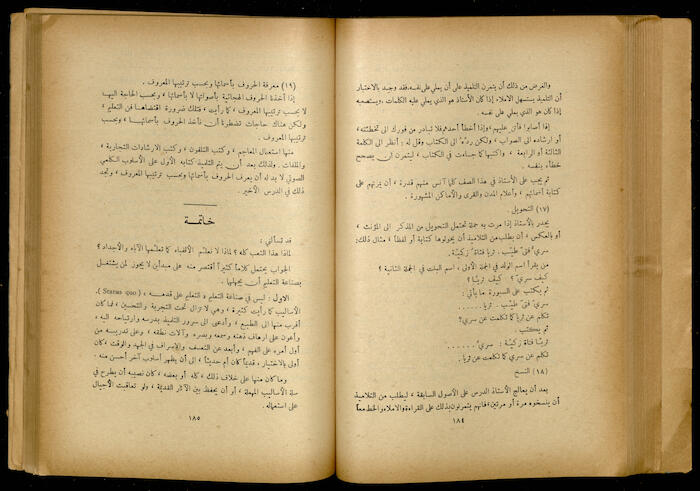 والغرض من ذلك أن يتمرن التلميذ على أن يملي على نفسه، فقد وجد بالاختبار
أن التلميذ يستسهل الاملاء إذا كان الأستاذ هو الذي يملي عليه الكلمات، ويستصعبه
إذا كان هو الذي يملي على نفسه.
إذا أصابوا فأثن عليهم، وإذا أخطأ أحدهم فلا تبادر من فورك الى تخطئته،
أو ارشاده الى الصواب، ولكن ردّه الى الكتاب وقل له: أنظر الى الكلمة
الثالثة أو الرابعة، واكتبها كما جاءت في الكتاب، ليتمرن أن يصحح
خطأه بنفسه.
ثم يجب على الأستاذ في هذا الصف كلما آنس منهم قدرة، أن يمرنهم على
كتابة أسمائهم، وأعلام المدن والقرى والأماكن المشهورة.
(١٧) التحويل.
يجدر بالأستاذ إذا مرت به جملة تحتمل التحويل من المذكر الى المؤنث،
أو بالعكس، أن يطلب من التلاميذ أن يحولوها كتابة أو لفظاً، مثال ذلك:
سري فتى طيب. ثريا فتاة زكينة.
من يقرأ اسم الولد في الجملة الأولى، اسم البنت في الجملة الثانية؟
كيف سري؟ كيف ثريا؟
ثم يكتب على السبورة ما يأتي:
سري فتى طيب. ثريا......
تكلم عن ثريا كما تكلمت عن سري؟
ثم يكتب:
ثريا فتاة زكينة: سري......
تكلم عن سري كما تكلمت عن ثريا.
(١٨) النسخ
بعد أن يعالج الأستاذ الدرس على الأصول السابقة، ليطلب من التلاميذ
أن ينسخوه مرة أو مرتين، فانهم يتمرنون بذلك على القراءة والاملاء والخط معاً
١٨٤
(١٩) معرفة الحروف بأسمائها وبحسب ترتيبها المعروف.
إذا أخذنا الحروف الهجائية بأصواتها لا بأسمائها، وبحسب الحاجة اليها
لا بحسب ترتيبها المعروف، كما رأيت، فتلك ضرورة اقتضاها فن التعليم،
ولكن هناك حاجات تضطرنا أن نأخذ الحروف بأسمائها، وبحسب
ترتيبها المعروف.
منها استعمال المعاجم، وكتب التلفون، وكتب الارشادات التجارية،
والملفات. ولذلك بعد أن يتم التلميذ كتابه الأول على الأسلوب الكلمي
الصوتي لا بد له أن يعرف الحروف بأسمائها وبحسب ترتيبها المعروف، وتجد
ذلك في الدرس الأخير.
خاتمة
قد تسألني:
لماذا هذا التعب كله؟ لماذا لا نعلم الألفباء كما تعلمها الآباء والأجداد؟
الجواب يحتمل كلاماً كثيراً أقتصر منه على مبدأين لا يجوز لمن يشتغل
بصناعة التعليم أن يجهلها.
الاول: ليس في صناعة التعليم والتعليم على قدمه، (Status quo).
الأساليب كما رأيت كثيرة، وهي لا تزال تحت التجربة والتحسين، فما كان
أقرب منها الى الطبيع، وأدعى الى سرور التلميذ بدرسه وارتياحه اليه،
وأعون على ارهاف ذهنه وسمعه وبصره وآلات نطقه، وعلى تدريسه من
أول أمره على الفهم، وأبعد عن التعسف والاسراف في الجهد والوقت، كان
أولى بالاختيار، قديماً كان أم حديثاً، الى أن يظهر أسلوب آخر أحسن منه.
وما كان منها على خلاف ذلك، كله أو بعضه، كان نصيبه أن يطرح في
سلة الأساليب المهملة، أو أن يحفظ بين الآثار القديمة، ولو تعاقبت الأجيال
على استعماله.
١٨٥